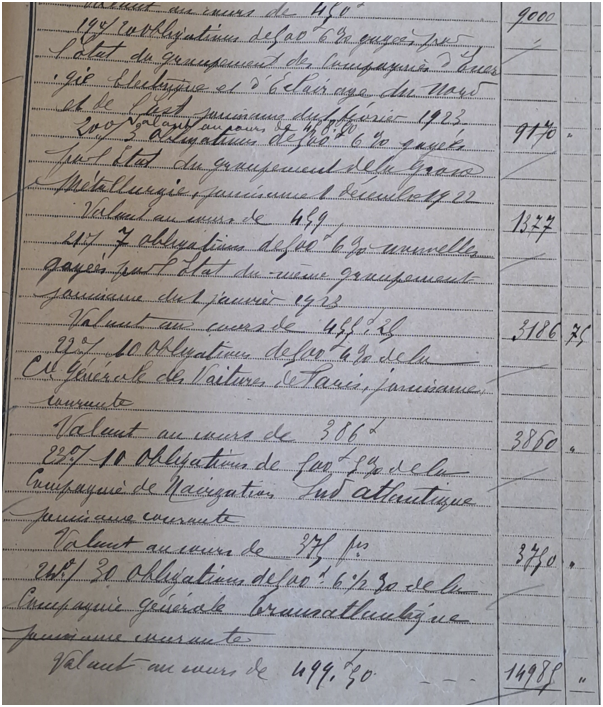 Valant au cours de 450f 9000
19°/ 20 obligations de 500f 6% gagées par
l'Etat du groupement des Compagnies d'Ener
gie Electrique et d'Eclairage du Nord
et de l'Est jouissance du février 1923
Valant au cours de 458.50 9170 "
20°/ 3 obligations de 500f 6% gagées
par l'Etat du groupement de la Grosse
Métallurgie, jouissance 1 décembre 1922
Valant au cours de 459 1377
21°/ 7 obligations de 500f 6% nouvelles
gagées par l'Etat du même groupement
jouissance du 1 janvier 1923
Valant au cours de 455f.25 3186 75
22°/ 10 Obligations de 500f 4% de la
Cie Générale des Voitures de Paris, jouissance
courante
Valant au cours de 386f 3860 "
23°/ 10 Obligations de 500f 5% de la
Compagnie de Navigation Sud atlantique
jouissance courante
Valant au cours de 375 frs 3750 "
24°/ 30 Obligations de 500f 6 1/2 % de la
Compagnie Générale Transatlantique
jouissance courante
Valant au cours de 499f.50 --- 14985 "